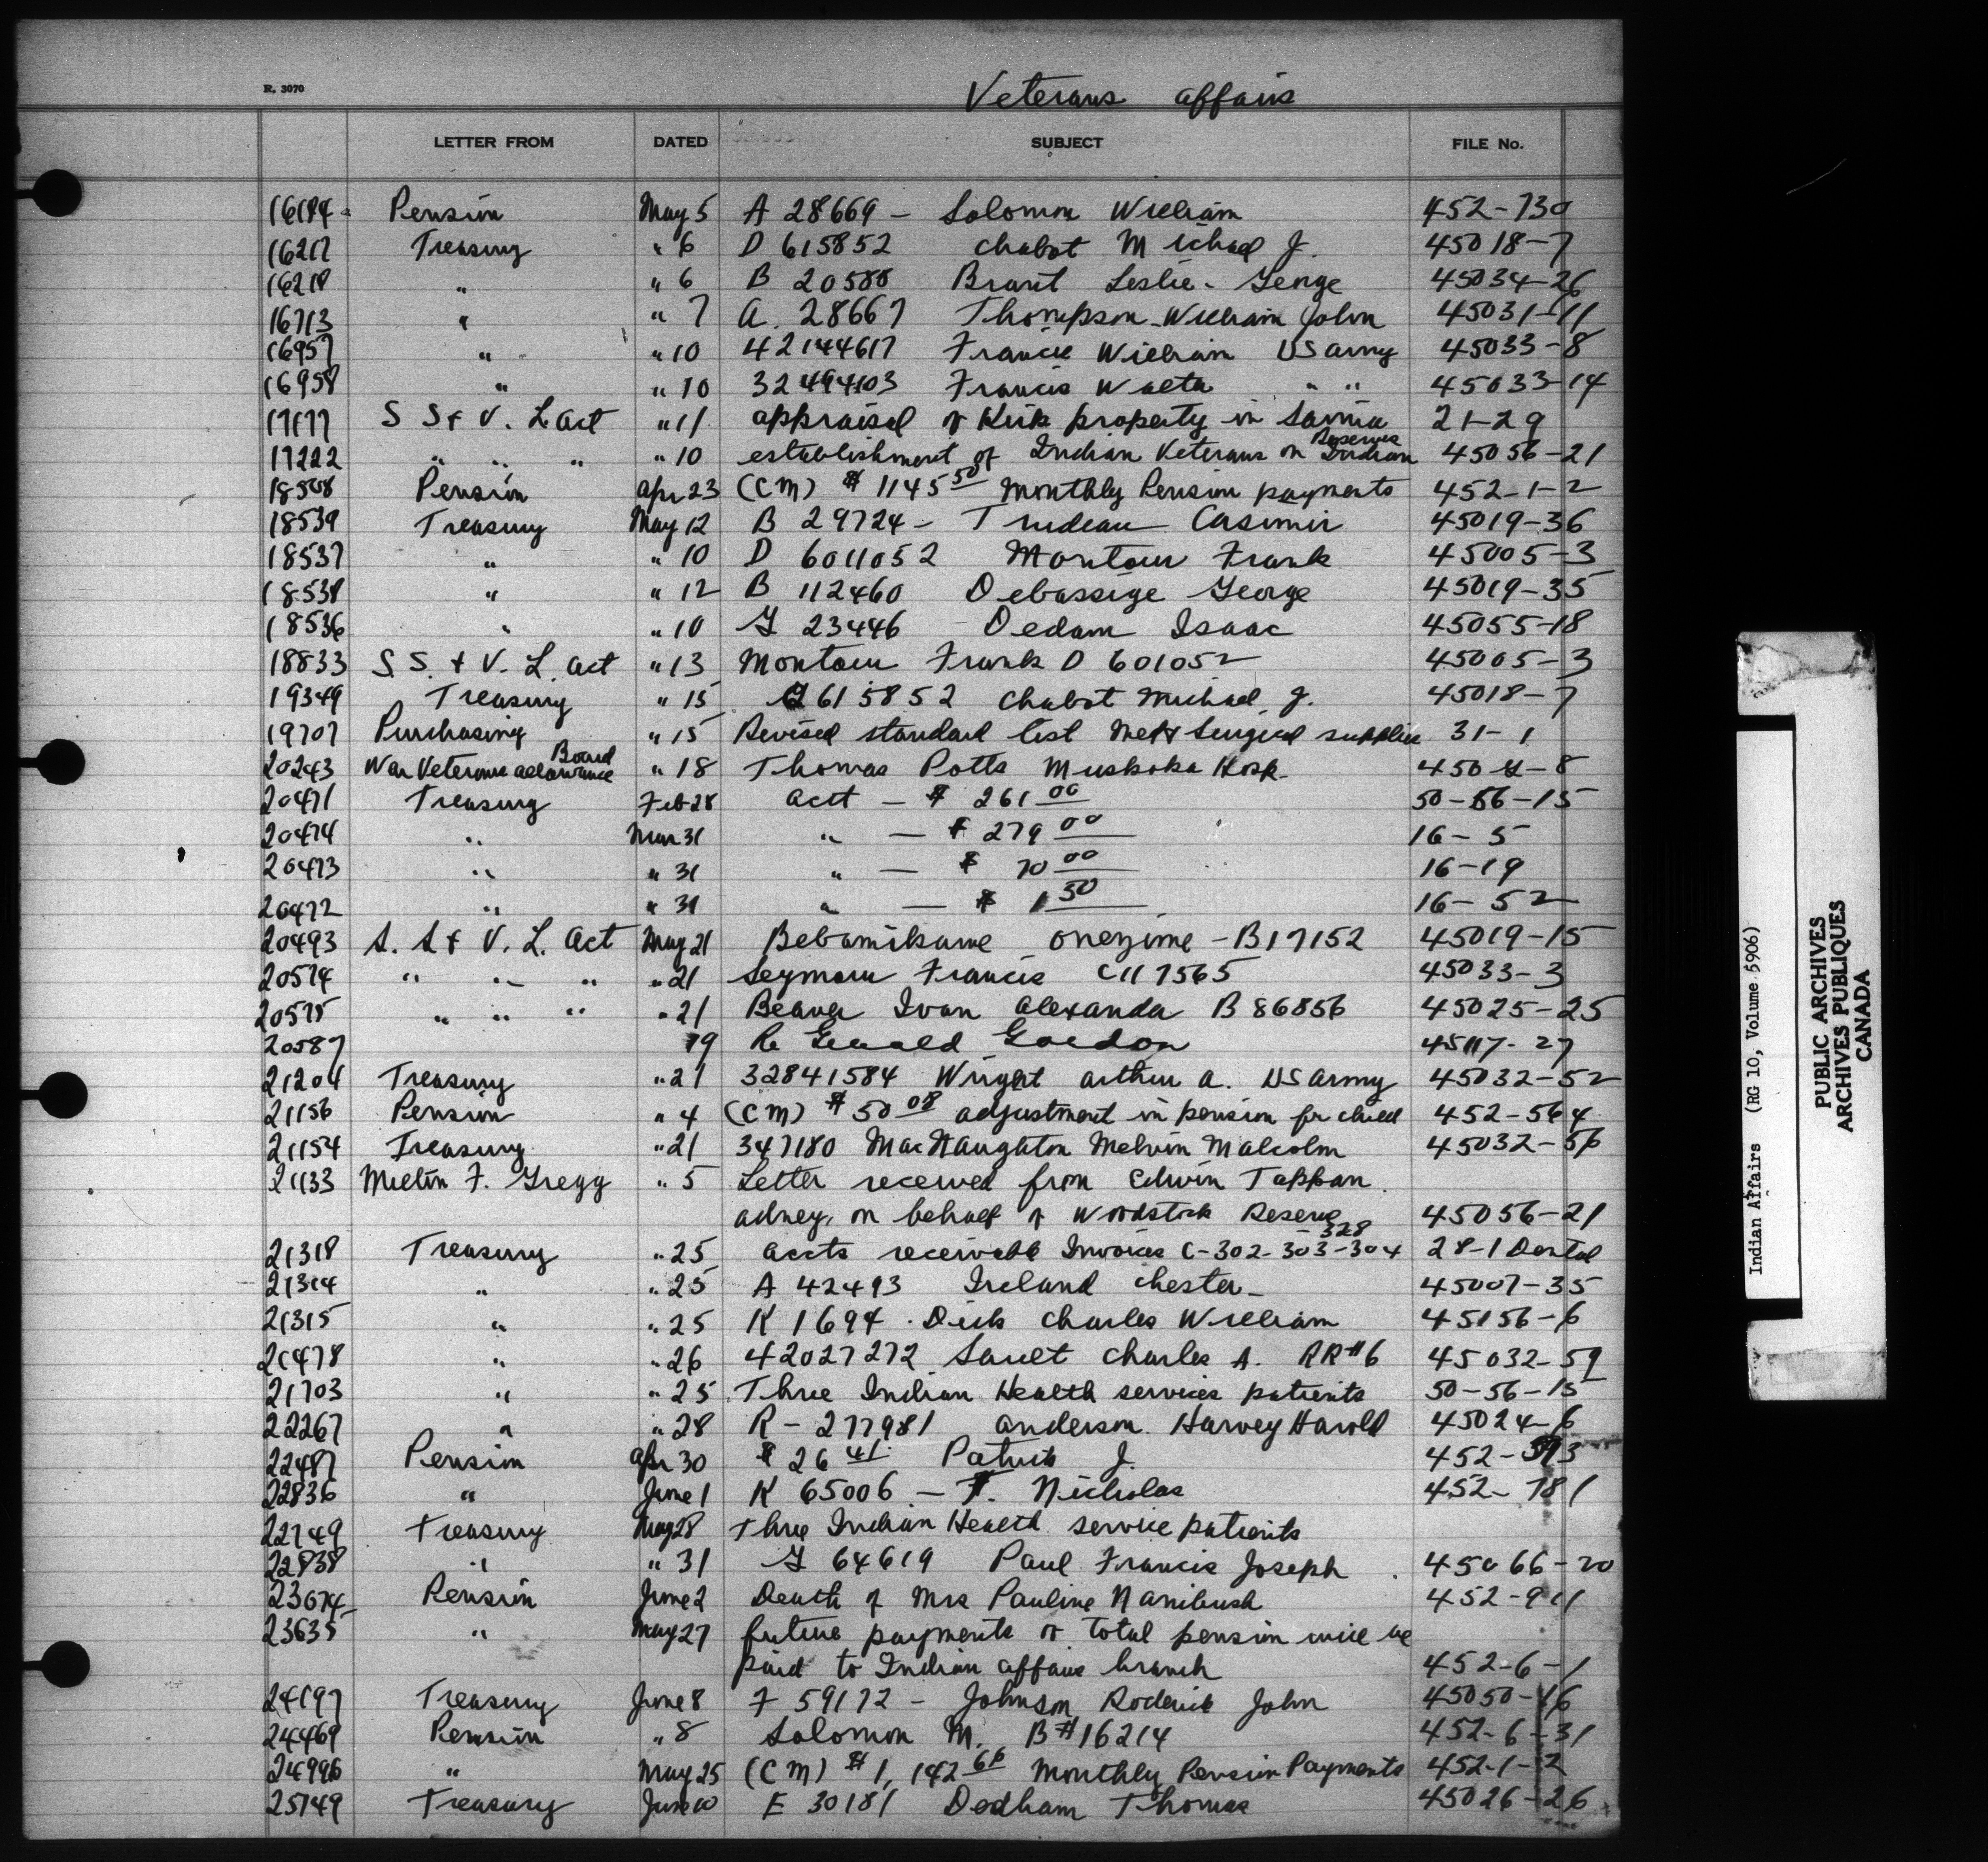 R. 3070
Veterans affairs
LETTER FROM DATED SUBJECT FILE No.
16194 Pension May 5 A 28669 - Solomon William 452-730
16217 Treasury " 6 D 615852 Chabot Michael J. 45018-7
16218 " " 6 B 20588 Brant Leslie - George 45034-26
16713 " " 7 A. 28667 Thompson William John 45031-11
16957 " " 10 42144617 Francis William US Army 45033-8
16958 " " 10 32494103 Francis Walter " " 45033-14
17177 S S & V. L Act " 11 appraisal of Kirk property in Sarnia 21-29
17222 " " " " 10 establishment of Indian Veterans on Indian Reserves 45056-21
18508 Pension Apr 23 (CM) $ 1145 50 Monthly Pension payments 452-1-2
18539 Treasury May 12 B 29724 - Trudeau Casimir 45019-36
18537 " " 10 D 6011052 Montour Frank 45005-3
18538 " " 12 B 112460 Debassige George 45019-35
18536 " " 10 G 23446 Dedam Isaac 45055-18
18833 S S. & V. L. Act " 13 Montour Frank D 601052 45005-3
19349 Treasury " 15 615852 Chabot Michael J. 45018-7
19707 Purchasing " 15 Revised standard list Med & Surgical supplies 31-1
20243 War Veterans allowance Board " 18 Thomas Potts Muskoka Hosp. 8
20471 Treasury Feb 28 acct - $ 261 00 50-56-15
20474 " Mar 31 " - $ 279 00 16-5
20473 " " 31 " - $ 70 00 16-19
20472 " " 31 " - $ 1 50 16-52
20493 S. S & V. L. Act May 21 Bebamikawe Onezime - B17152 45019-15
20574 " " " " 21 Seymour Francis C117565 45033-3
20575 " " " " 21 Beaver Ivan Alexander B 86856 45025-25
20587 19 Re Gerald Gordon 45117-27
21204 Treasury " 21 32841584 Wright Arthur A. US Army 45032-52
21156 Pension " 4 (CM) $ 50 08 adjustment in pension for child 452-564
21154 Treasury " 21 347180 MacNaughton Melvin Malcolm 45032-56
21133 Milton F. Gregg " 5 Letter received from Edwin Tappan
adney, on behalf of Woodstock Reserve 45056-21
21318 Treasury " 25 accts receivable Invoices C-302-303-304 328 28-1 Dental
21314 " " 25 A 42493 Ireland Chester 45007-35
21315 " " 25 K 1694 Dick Charles William 45156-6
21478 " " 26 42027272 Charles A. RR#6 45032-59
21703 " " 25 Three Indian Health services patients 50-56-15
22267 " " 28 R - 277981 Anderson Harvey Harold 45024-6
22487 Pension Apr 30 $ 26 41 Patrick J. 452-593
22836 " June 1 K 65006 - F. Nicholas 452-781
22749 Treasury May 28 Three Indian Health service patients
22838 " " 31 G 64619 Paul Francis Joseph 45066-20
23674 Pension June 2 Death of Mrs Pauline Nanibush 452-911
23635 " May 27 future payments of total pension will be
paid to Indian affairs branch 452-6-1
24197 Treasury June 8 F 59172 - Johnson Roderick John 45050-16
24469 Pension " 8 Solomon M. B#16214 452-6-31
24996 " May 25 (CM) $ 1,142 66 Monthly Pension Payments 452-1-2
25749 Treasury June 10 E 30181 Dedham Thomas 45026-26
Indian Affairs (RG 10, Volume 5906)
PUBLIC ARCHIVES
ARCHIVES PUBLIQUES
CANADA